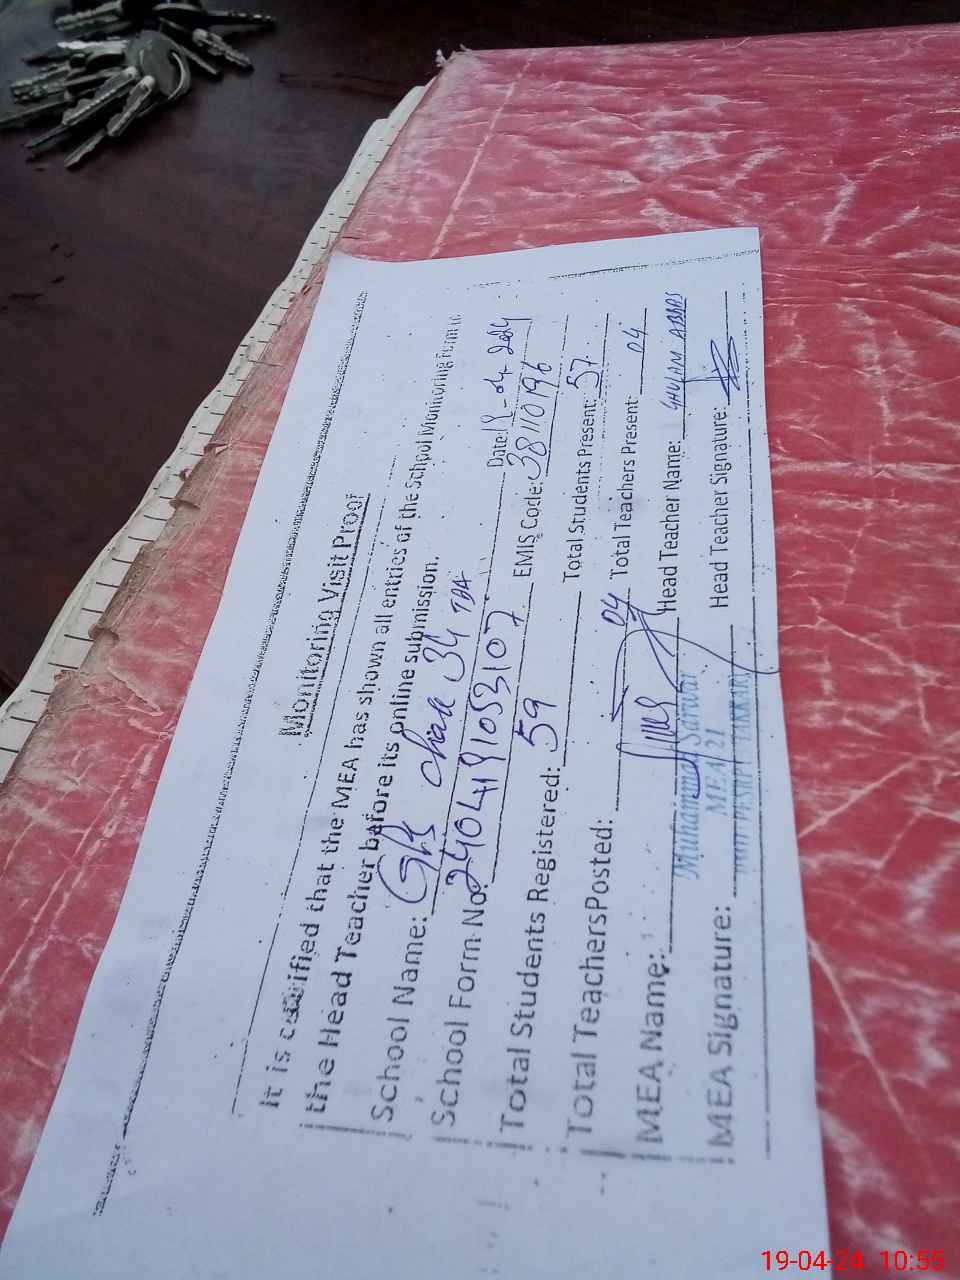 Monitoring Visit Proof
It is certified that the MEA has shown all entries of the School Monitoring Form to
the Head Teacher before its online submission.
School Name: GPS Chak 34 TDA Date: 19-04-2024
School Form No. 240419103107 EMIS Code: 38110196
Total Students Registered: 59 Total Students Present: 57
Total Teachers Posted: 04 Total Teachers Present: 04
MEA Name: Muhammad Sarwar Head Teacher Name: GHULAM ABBAS
MEA 21
MEA Signature: Head Teacher Signature:
19-04-24 10:55